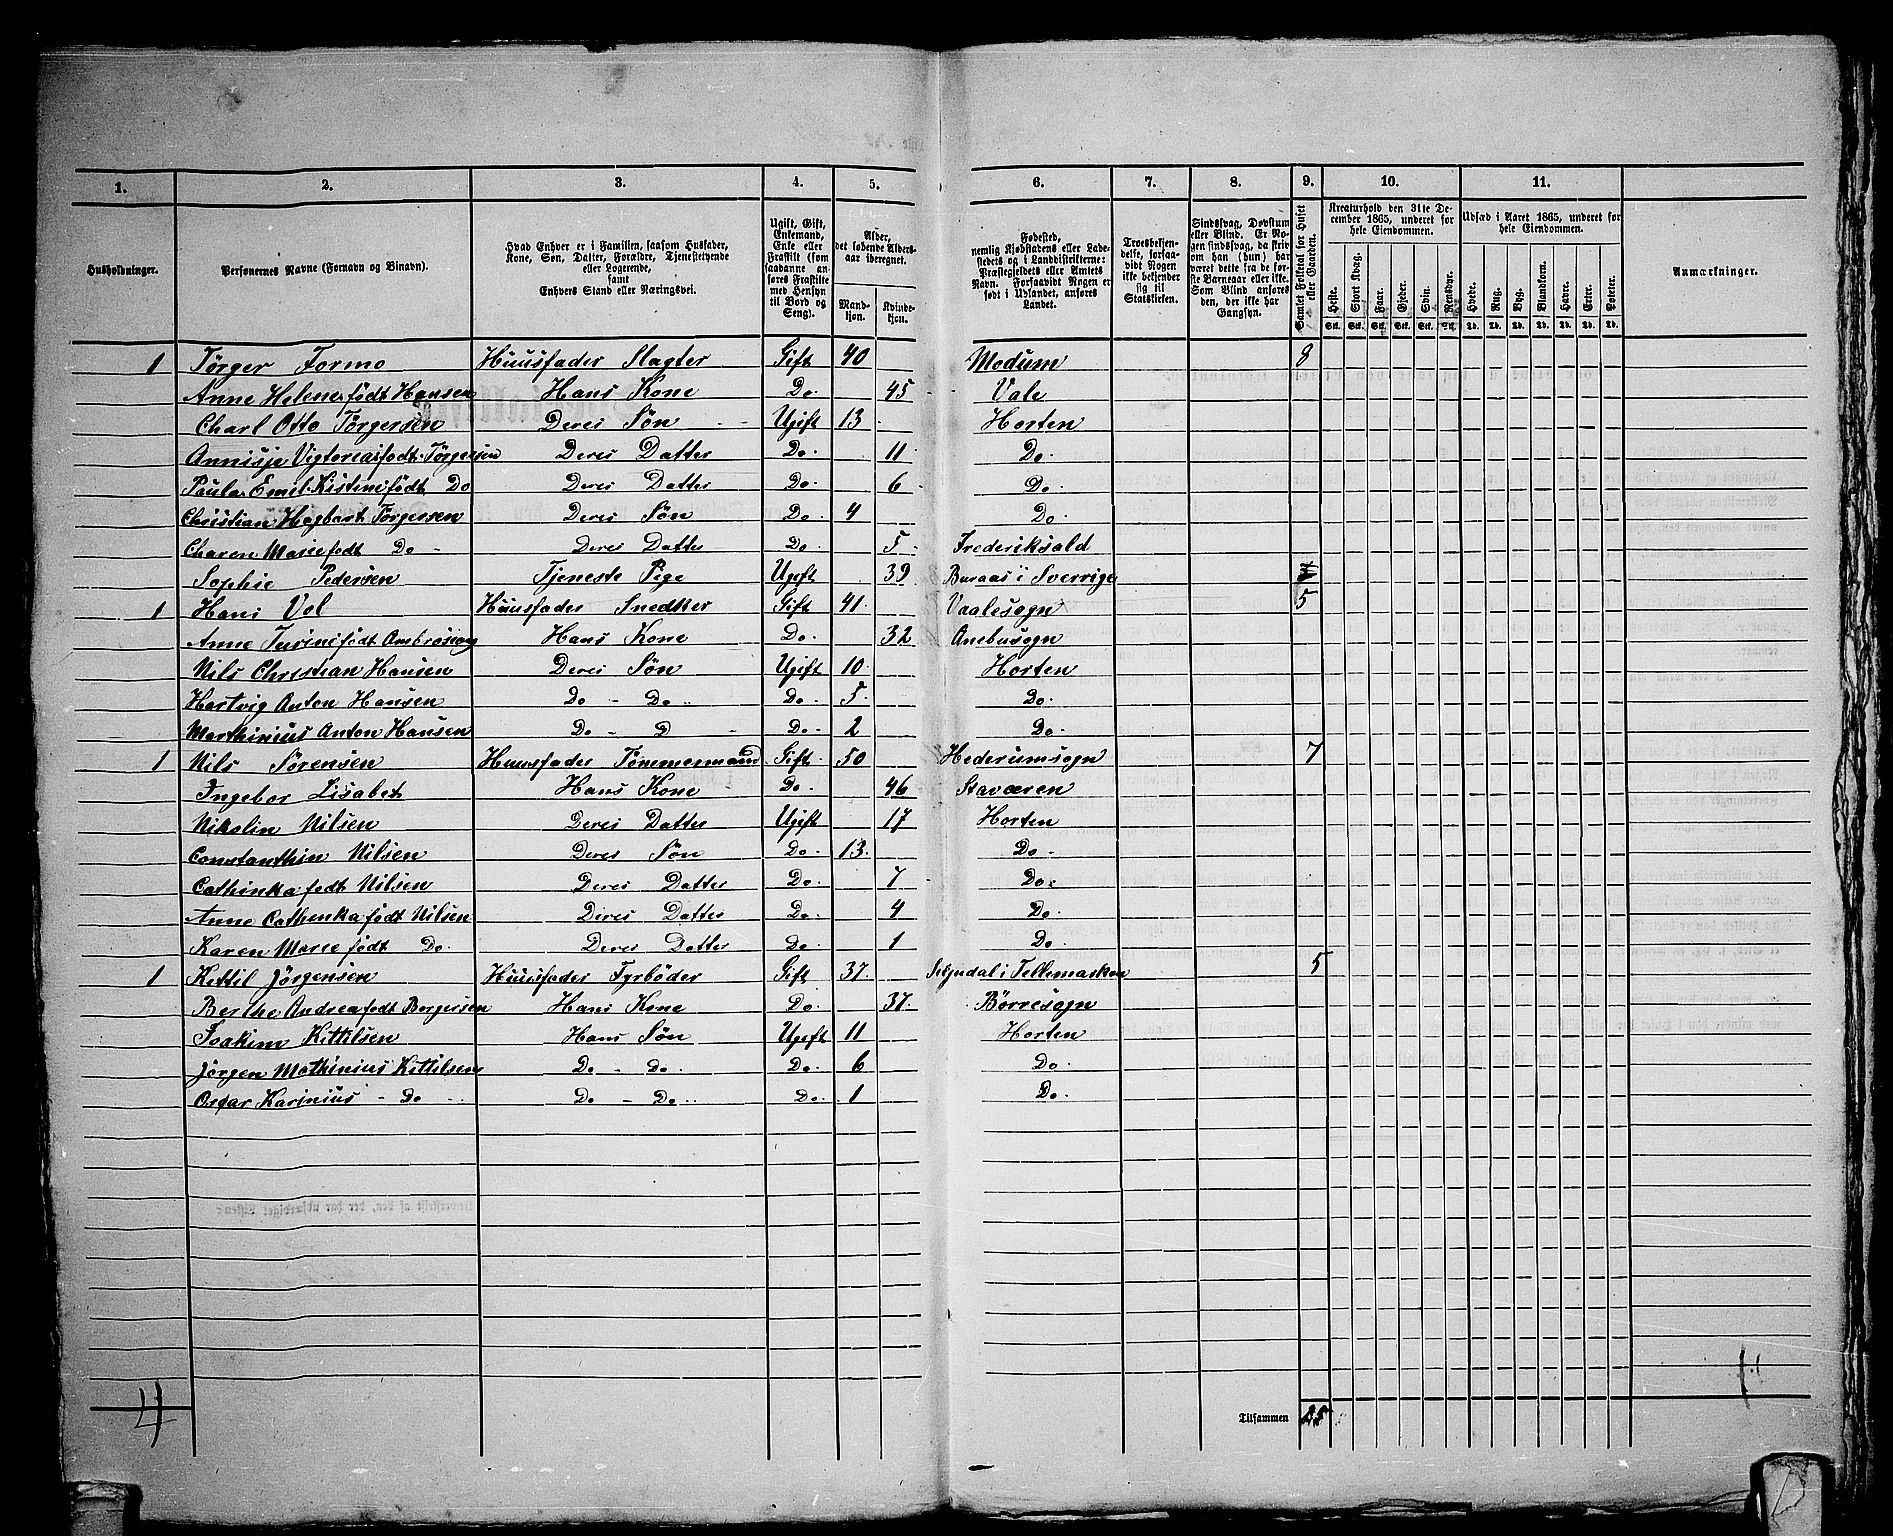 1. 2. 3. 4. 5. 6. 7. 8. 9. 10. 11.
Husholdninger.
Personernes Navne (Fornavn og Binavn).
Hvad Enhver er i Familien, saasom Husfader,
Kone, Søn, Datter, Forældre, Tjenestetyende
eller Logerende,
samt
Enhvers Stand eller Næringsvei.
Ugift, Gift,
Enkemand,
Enke eller
Fraskilt (som
saadanne an-
føres Fraskilte
med Hensyn
til Bord og
Seng).
Alder,
det løbende Alders-
aar iberegnet.
Mand-
kjøn.
Kvinde-
kjøn.
Fødested,
nemlig Kjøbstadens eller Lade-
stedets og i Landdistrikterne:
Præstegjeldets eller Amtets
Navn. Forsaavidt Nogen er
født i Udlandet, anføres
Landet.
Troesbekjen-
delse, forsaa-
vidt Nogen
ikke bekjender
sig til
Statskirken.
Sindssvag, Døvstum
eller Blind. Er No-
gen sindssvag, da skriv
om han (hun) har
været dette fra de før-
ste Barneaar eller ikke.
Som Blind anføres
den, der ikke har
Gangsyn.
Samlet Folketal for Huset
eller Gaarden.
Kreaturhold den 31te De-
cember 1865, underet for
hele Eiendommen.
Heste. Stort Kvæg. Faar. Gjeder. Svin. Rensdyr.
Stk. Stk. Stk. Stk. Stk. Stk.
Udsæd i Aaret 1865, underet for
hele Eiendommen.
Hvede. Rug. Byg. Blandkorn. Havre. Erter. Poteter.
Td. Td. Td. Td. Td. Td. Td.
Anmærkninger.
1 Tørger Formo Huusfader Slagter Gift 40 Modum 8
Anne Helene født Hansen Hans Kone Do. 45 Vale
Charl Otto Tørgersen Deres Søn Ugift 13 Horten
Annisje Vigtoria født Tørgersen Deres Datter Do. 11 Do.
Paula Emil. Kistine født Do Deres Datter Do. 6 Do.
Christian Hagbart Tørgersen Deres Søn Do. 4 Do.
Charen Marie født Do - Deres Datter Do. 5 Frederiksald
Sophie Pedersen Tjeneste Pige Ugift 39 Buraas i Sverrige
1 Hans Vol Huusfader Snedker Gift 41 Vaalesogn 5
Anne Turine født Hans Kone Do. 32 Anebusogn
Nils Christian Hansen Deres Søn Ugift 10 Horten
Hartvig Anton Hansen Do - Do Do. 5 Do.
Marthinius Anton Hansen Do - D - Do. 2 Do.
1 Nils Sørensen Huusfader Tømmermand Gift 50 Hederumsogn 7
Ingebor Lisabet Hans Kone Do. 46 Staværen
Nikolin Nilsen Deres Datter Ugift 17 Horten
Constanthin Nilsen Deres Søn Do. 13 Do.
Cathinka født Nilsen Deres Datter Do. 7 Do.
Anne Cathenka født Nilsen Deres Datter Do. 4 Do.
Karen Marie født Do. Deres Datter Do. 1 Do.
1 Kittil Jörgensen Huusfader Fyrbøder Gift 37 Seljudal i Tellemarken 5
Berthe Andrea født Borgersen Hans Kone Do. 37 Børresogn
Joakim Kittilsen Hans Søn Ugift 11 Horten
Jørgen Mathinius Kittilsen Do - do. Do. 6 Do.
Oscar Karinius - Do Do - Do Do. 1 Do.
4
Tilsammen 25